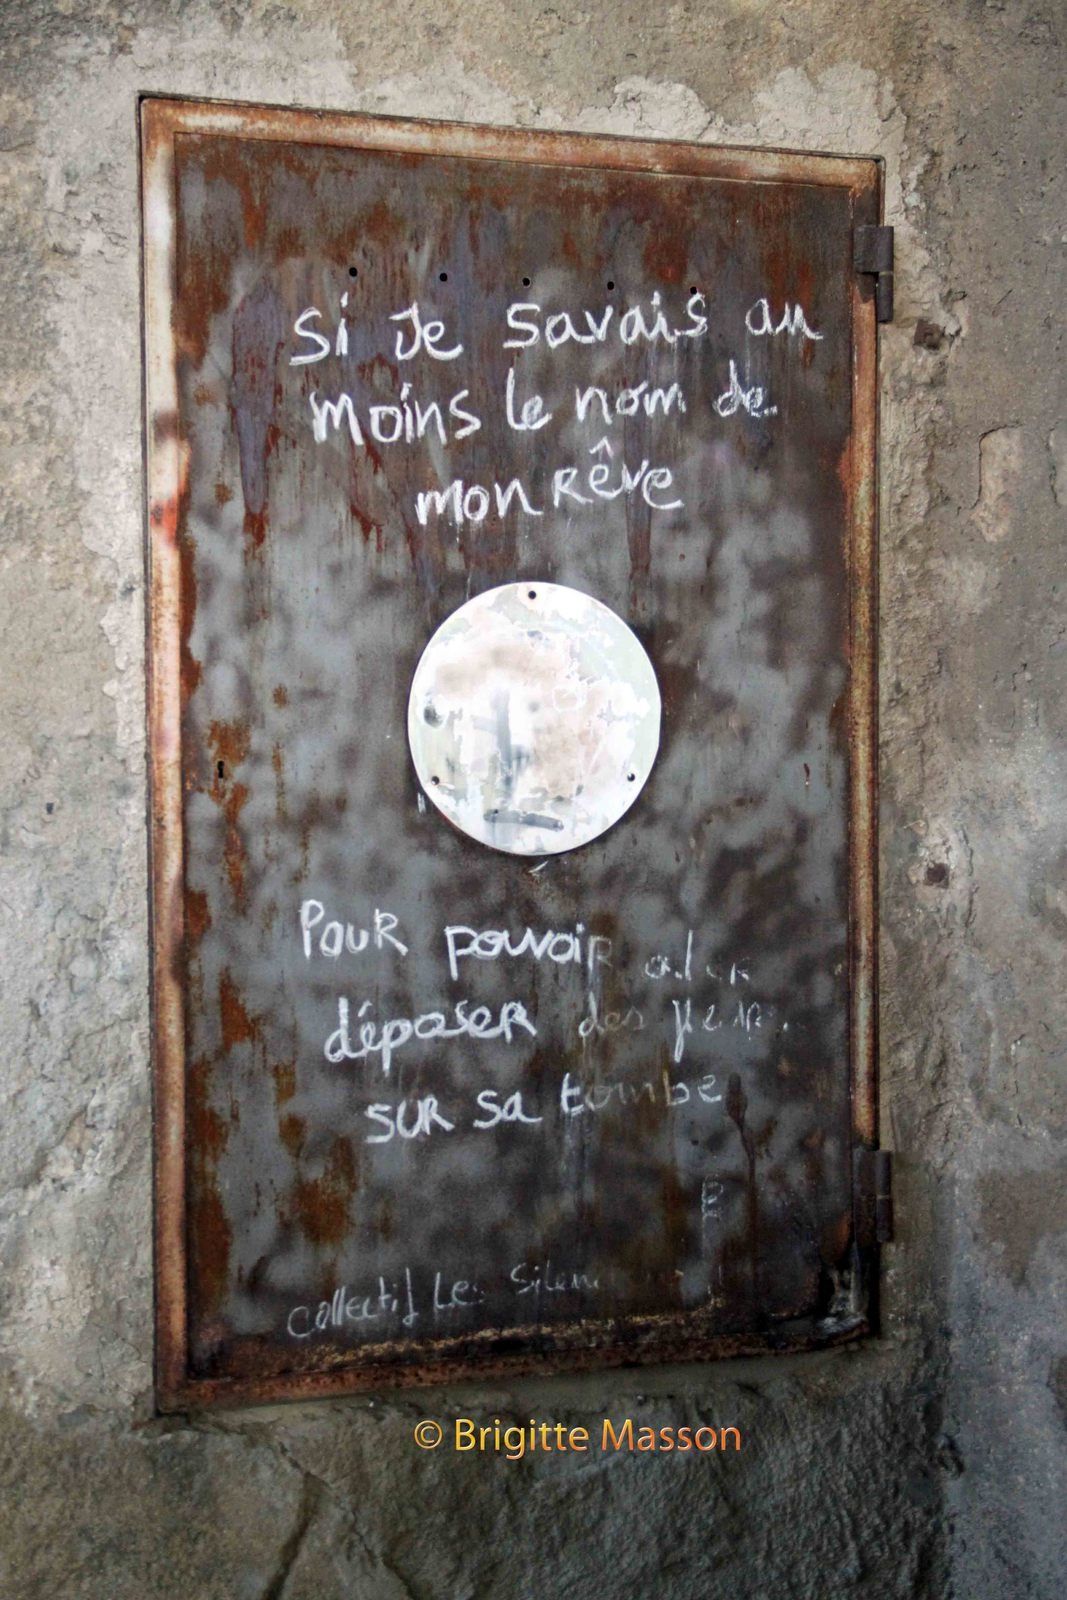 si Je savais au
moins le nom de
mon Rêve
Pour pouvoir aler
déposer des fleurs
sur sa tombe
collectif Les
© Brigitte Masson